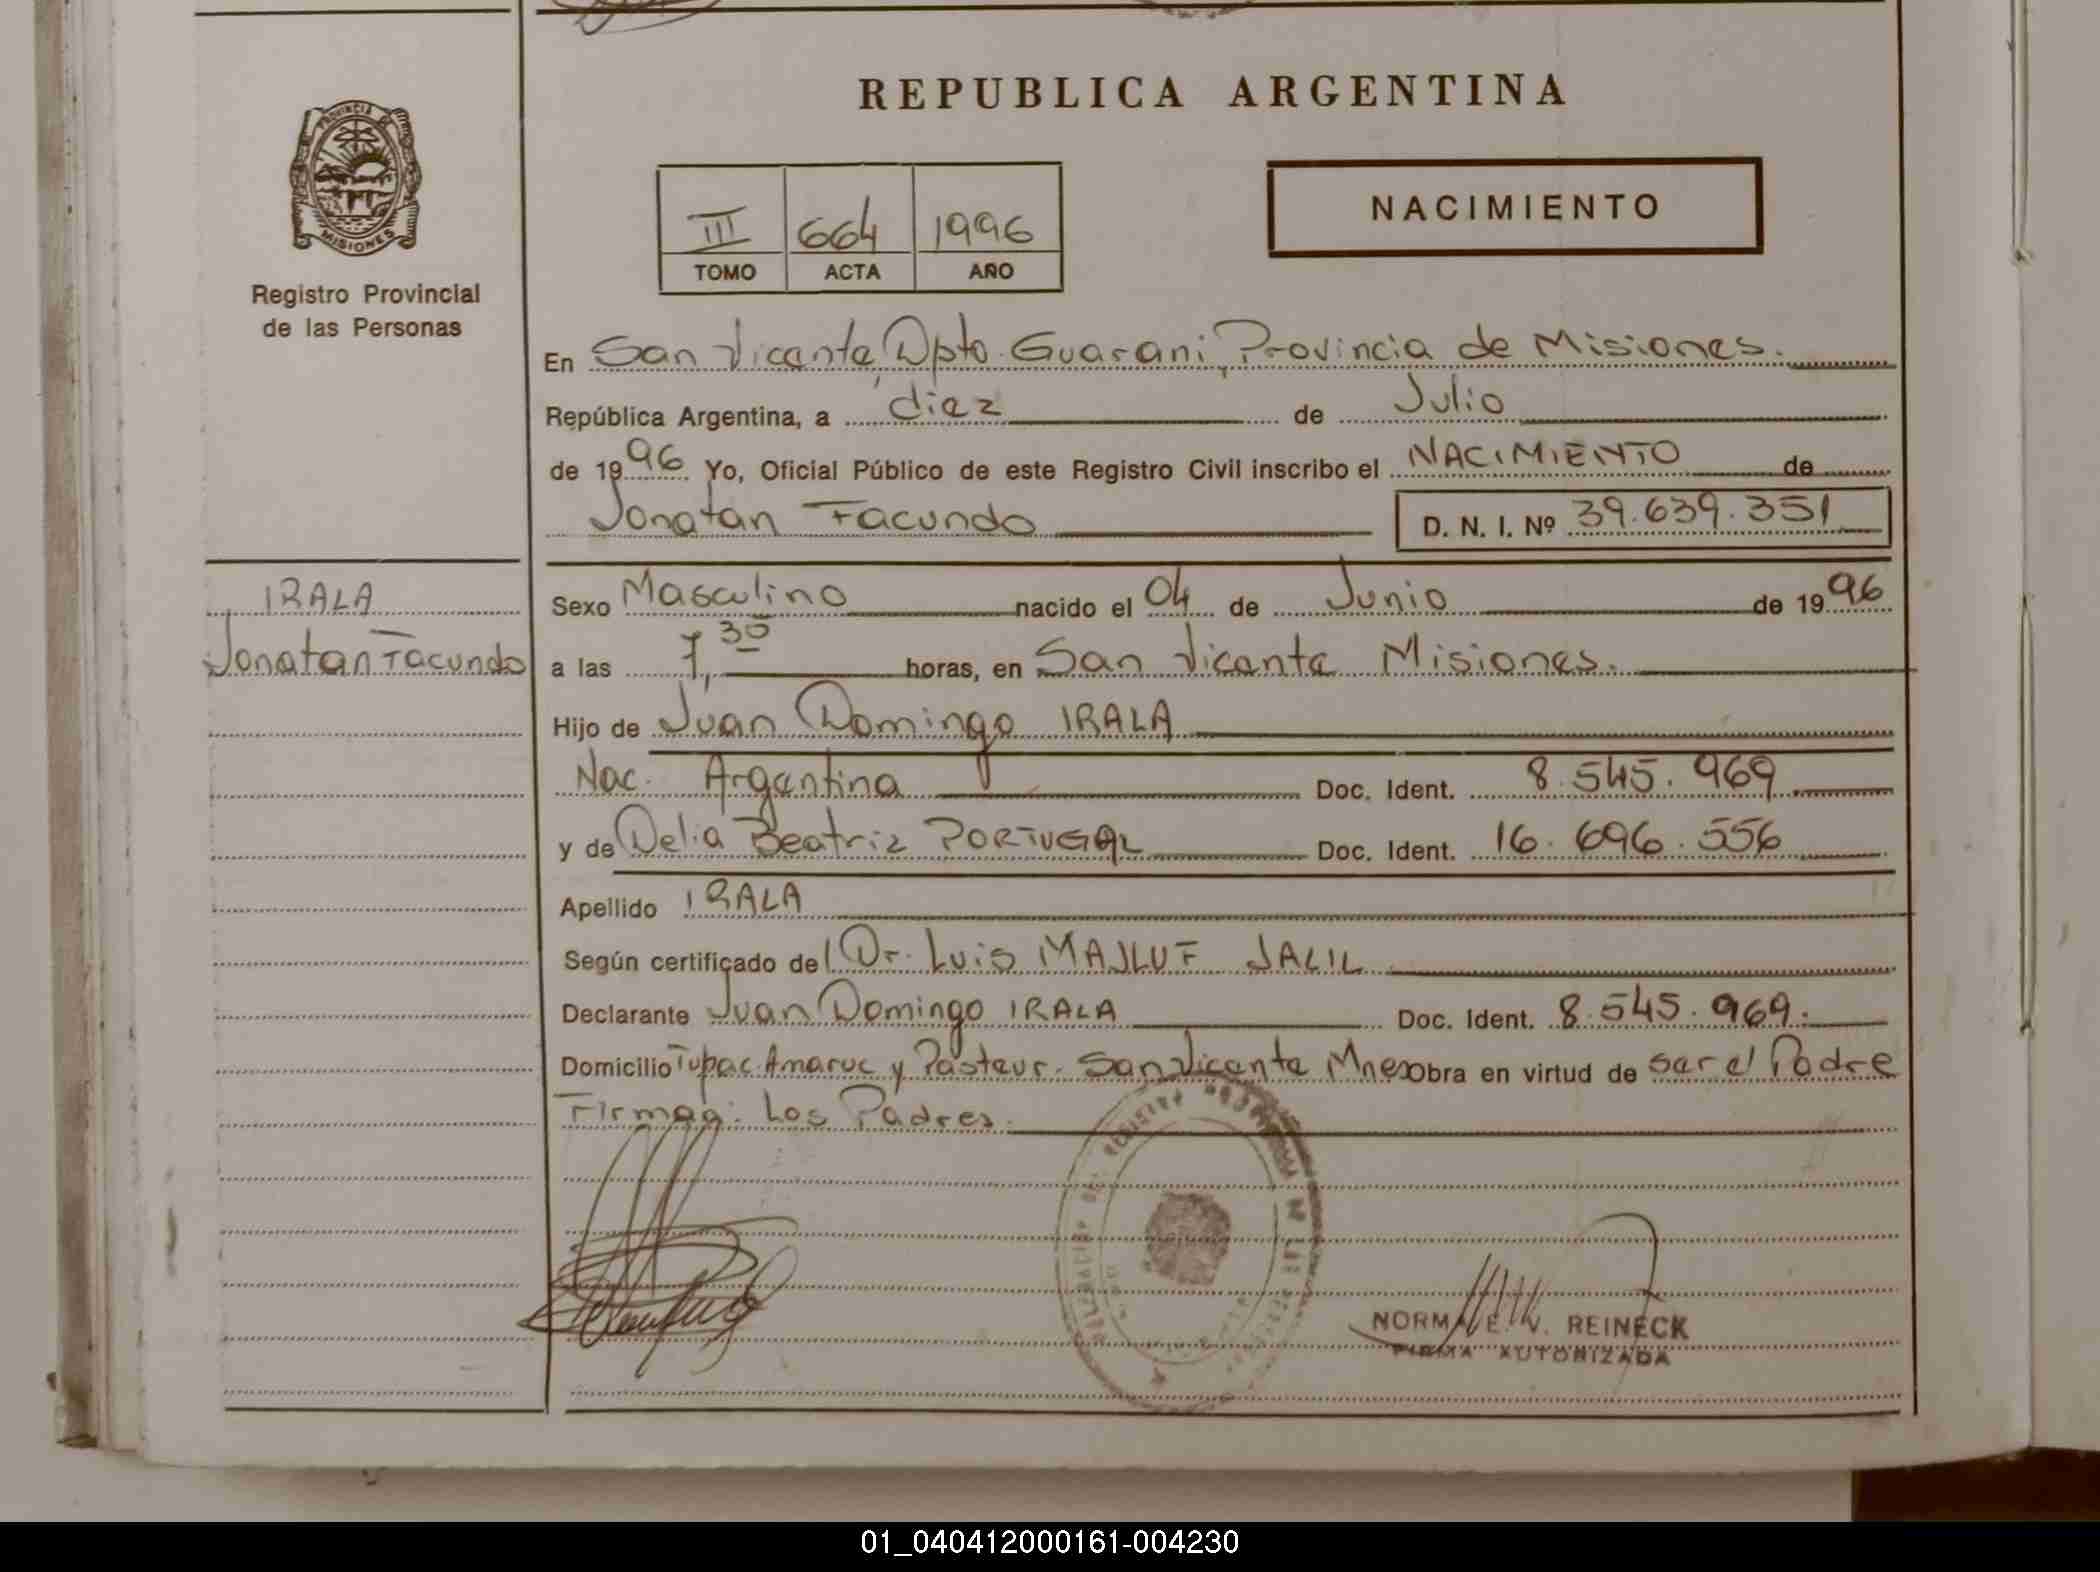 REPUBLICA ARGENTINA
PROVINCIA DE
MISIONES
Registro Provincial
de las Personas
NACIMIENTO
III 664 1996
TOMO ACTA AÑO
En San Vicente, Dpto. Guarani, Provincia de Misiones.
República Argentina, a diez de Julio
de 1996 Yo, Oficial Público de este Registro Civil inscribo el NACIMIENTO de
Jonatan Facundo D. N. I. Nº 39.639.351
IRALA
Jonatan Facundo
Sexo Masculino nacido el 04 de Junio de 1996
a las 7,30 horas, en San Vicente Misiones.
Hijo de Juan Domingo IRALA
Nac. Argentina Doc. Ident. 8.545.969
y de Delia Beatriz PORTUGAL Doc. Ident. 16.696.556
Apellido IRALA
Según certificado del Dr. Luis MAJLUF JALIL
Declarante Juan Domingo IRALA Doc. Ident. 8.545.969.
Domicilio Tupac Amaruc y Pasteur. San Vicente Mnes obra en virtud de ser el Padre
Firman: Los Padres.
NORMA E. V. REINECK
FIRMA AUTORIZADA
01_040412000161-004230